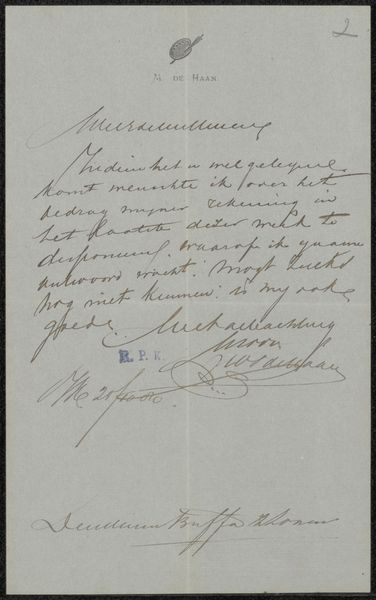 2
M. DE HAAN.
Indien het u wel gelegen
komt wenschte ik over het
bedrag mijner rekening in
het laatste dezer week te
disponeeren. waarop ik gaarne
antwoord wacht. Mogt zulks
nog niet kunnen: is mij ook
goed.
Met achting
R. P. K.
de Haan
Buffa & Zonen